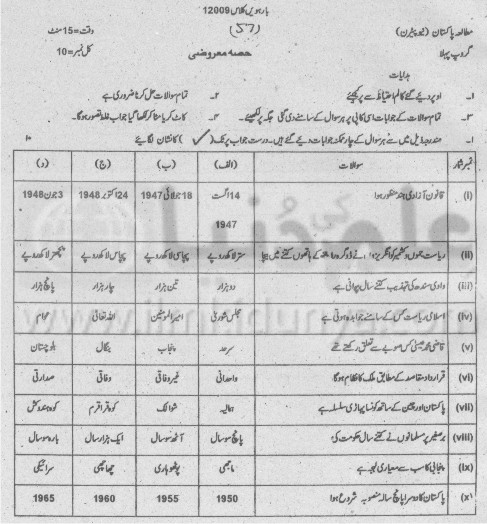 بارہویں کلاس 12009
مطالعہ پاکستان (نیو پیٹرن) (57) وقت=15 منٹ
گروپ پہلا حصہ معروضی کل نمبر=10
ہدایات
۱۔ اوپر دیئے گئے کالم احتیاط سے پُر کیجئے ۲۔ تمام سوالات حل کرنا ضروری ہے
۳۔ تمام سوالات کے جوابات اسی کاپی پر ہر سوال کے سامنے دی گئی جگہ پر لکھیئے۔ ۴۔ کاٹ کر یا مٹا کر لکھا گیا جواب غلط تصور ہوگا۔
۱۔ مندرجہ ذیل میں سے ہر سوال کے چار ممکنہ جوابات دیئے گئے ہیں۔ درست جواب پر ٹک (✓) کا نشان لگائیے ۱۰
نمبر شمار سوالات (الف) (ب) (ج) (د)
(i) قانون آزادی ہند منظور ہوا 14 اگست 1947 18 جولائی 1947 24 اکتوبر 1948 3 جون 1948
(ii) ریاست جموں و کشمیر کو انگریزوں نے ڈوگرہ راجہ کے ہاتھوں کتنے میں بیچا ستر لاکھ روپے پچاسی لاکھ روپے پچاس لاکھ روپے پچھتر لاکھ روپے
(iii) وادی سندھ کی تہذیب کتنے سال پرانی ہے دو ہزار تین ہزار چار ہزار پانچ ہزار
(iv) اسلامی ریاست کس کے سامنے جوابدہ ہوتی ہے مجلس شوریٰ امیر المومنین اللہ تعالیٰ عوام
(v) قاضی محمد عیسیٰ کس صوبے سے تعلق رکھتے تھے سرحد پنجاب بنگال بلوچستان
(vi) قرارداد مقاصد کے مطابق ملک کا نظام ہوگا وحدانی غیر وفاقی وفاقی صدارتی
(vii) پاکستان اور چین کے درمیان کونسا پہاڑی سلسلہ ہے ہمالیہ شوالک کوہ قراقرم کوہ ہندوکش
(viii) برصغیر پر مسلمانوں نے کتنے سال حکومت کی پانچ سو سال آٹھ سو سال ایک ہزار سال بارہ سو سال
(ix) پنجابی کا سب سے معیاری لہجہ ہے ماجھی پوٹھوہاری چھاچھی سرائیکی
(x) پاکستان کا دوسرا پانچ سالہ منصوبہ شروع ہوا 1950 1955 1960 1965